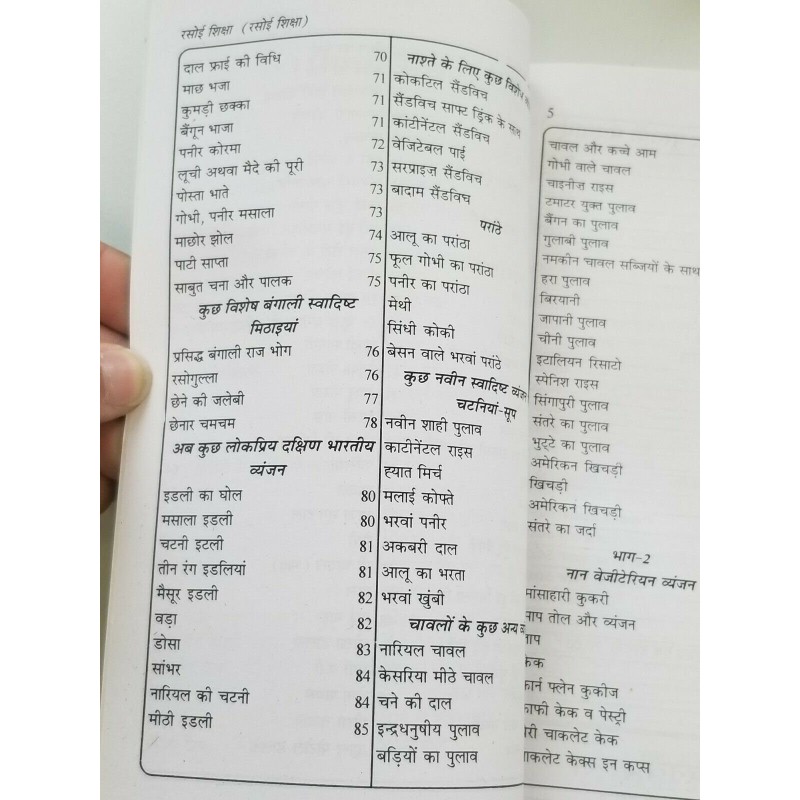 रसोई शिक्षा (रसोई शिक्षा)
दाल फ्राई की विधि 70
माछ भजा 71
कुमड़ी छक्का 71
बैंगून भाजा 71
पनीर कोरमा 72
लूची अथवा मैदे की पूरी 73
पोस्ता भाते 73
गोभी, पनीर मसाला 73
माछोर झोल 74
पाटी साप्ता 75
साबुत चना और पालक 75
कुछ विशेष बंगाली स्वादिष्ट
मिठाइयां
प्रसिद्ध बंगाली राज भोग 76
रसोगुल्ला 76
छेने की जलेबी 77
छेनार चमचम 78
अब कुछ लोकप्रिय दक्षिण भारतीय
व्यंजन
इडली का घोल 80
मसाला इडली 80
चटनी इटली 81
तीन रंग इडलियां 81
मैसूर इडली 82
वड़ा 82
डोसा 83
सांभर 84
नारियल की चटनी 84
मीठी इडली 85
नाश्ते के लिए कुछ विशेष
कोकटिल सैंडविच
सैंडविच साफ्ट ड्रिंक के साथ
कांटीनेंटल सैंडविच
वेजिटेबल पाई
सरप्राइज़ सैंडविच
बादाम सैंडविच
परांठे
आलू का परांठा
फूल गोभी का परांठा
पनीर का परांठा
मेथी
सिंधी कोकी
बेसन वाले भरवां परांठे
कुछ नवीन स्वादिष्ट व्यंजन
चटनियां-सूप
नवीन शाही पुलाव
काटीनेंटल राइस
ह्यात मिर्च
मलाई कोफ्ते
भरवां पनीर
अकबरी दाल
आलू का भरता
भरवां खुंबी
चावलों के कुछ अन्य
नारियल चावल
केसरिया मीठे चावल
चने की दाल
इन्द्रधनुषीय पुलाव
बड़ियों का पुलाव
5
चावल और कच्चे आम
गोभी वाले चावल
चाइनीज़ राइस
टमाटर युक्त पुलाव
बैंगन का पुलाव
गुलाबी पुलाव
नमकीन चावल सब्जियों के साथ
हरा पुलाव
बिरयानी
जापानी पुलाव
चीनी पुलाव
इटालियन रिसाटो
स्पेनिश राइस
सिंगापुरी पुलाव
संतरे का पुलाव
भुट्टे का पुलाव
अमेरिकन खिचड़ी
खिचड़ी
अमेरिकन खिचड़ी
संतरे का जर्दा
भाग-2
नान वेजीटेरियन व्यंजन
मांसाहारी कुकरी
तोल और व्यंजन
केक
फ्लेन कुकीज
काफी केक व पेस्ट्री
चाकलेट केक
चाकलेट केक्स इन कप्स